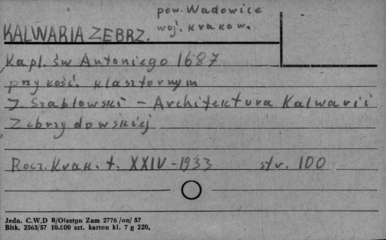 pow. Wadowice
KALWARIA ZEBRZ. woj. krakow.
Kapl. św Antoniego 1687
przy kość. klasztornym
J Szabłowski - Architektura Kalwarii
Zebrzydowskiej
Rocz. Krak. t. XXIV - 1933 str. 100
Jedn. C.W.D B/Olsztyn Zam 2776/on/57
Bltk. 2563/57 10.000 szt. karton kl. 7 g 220.